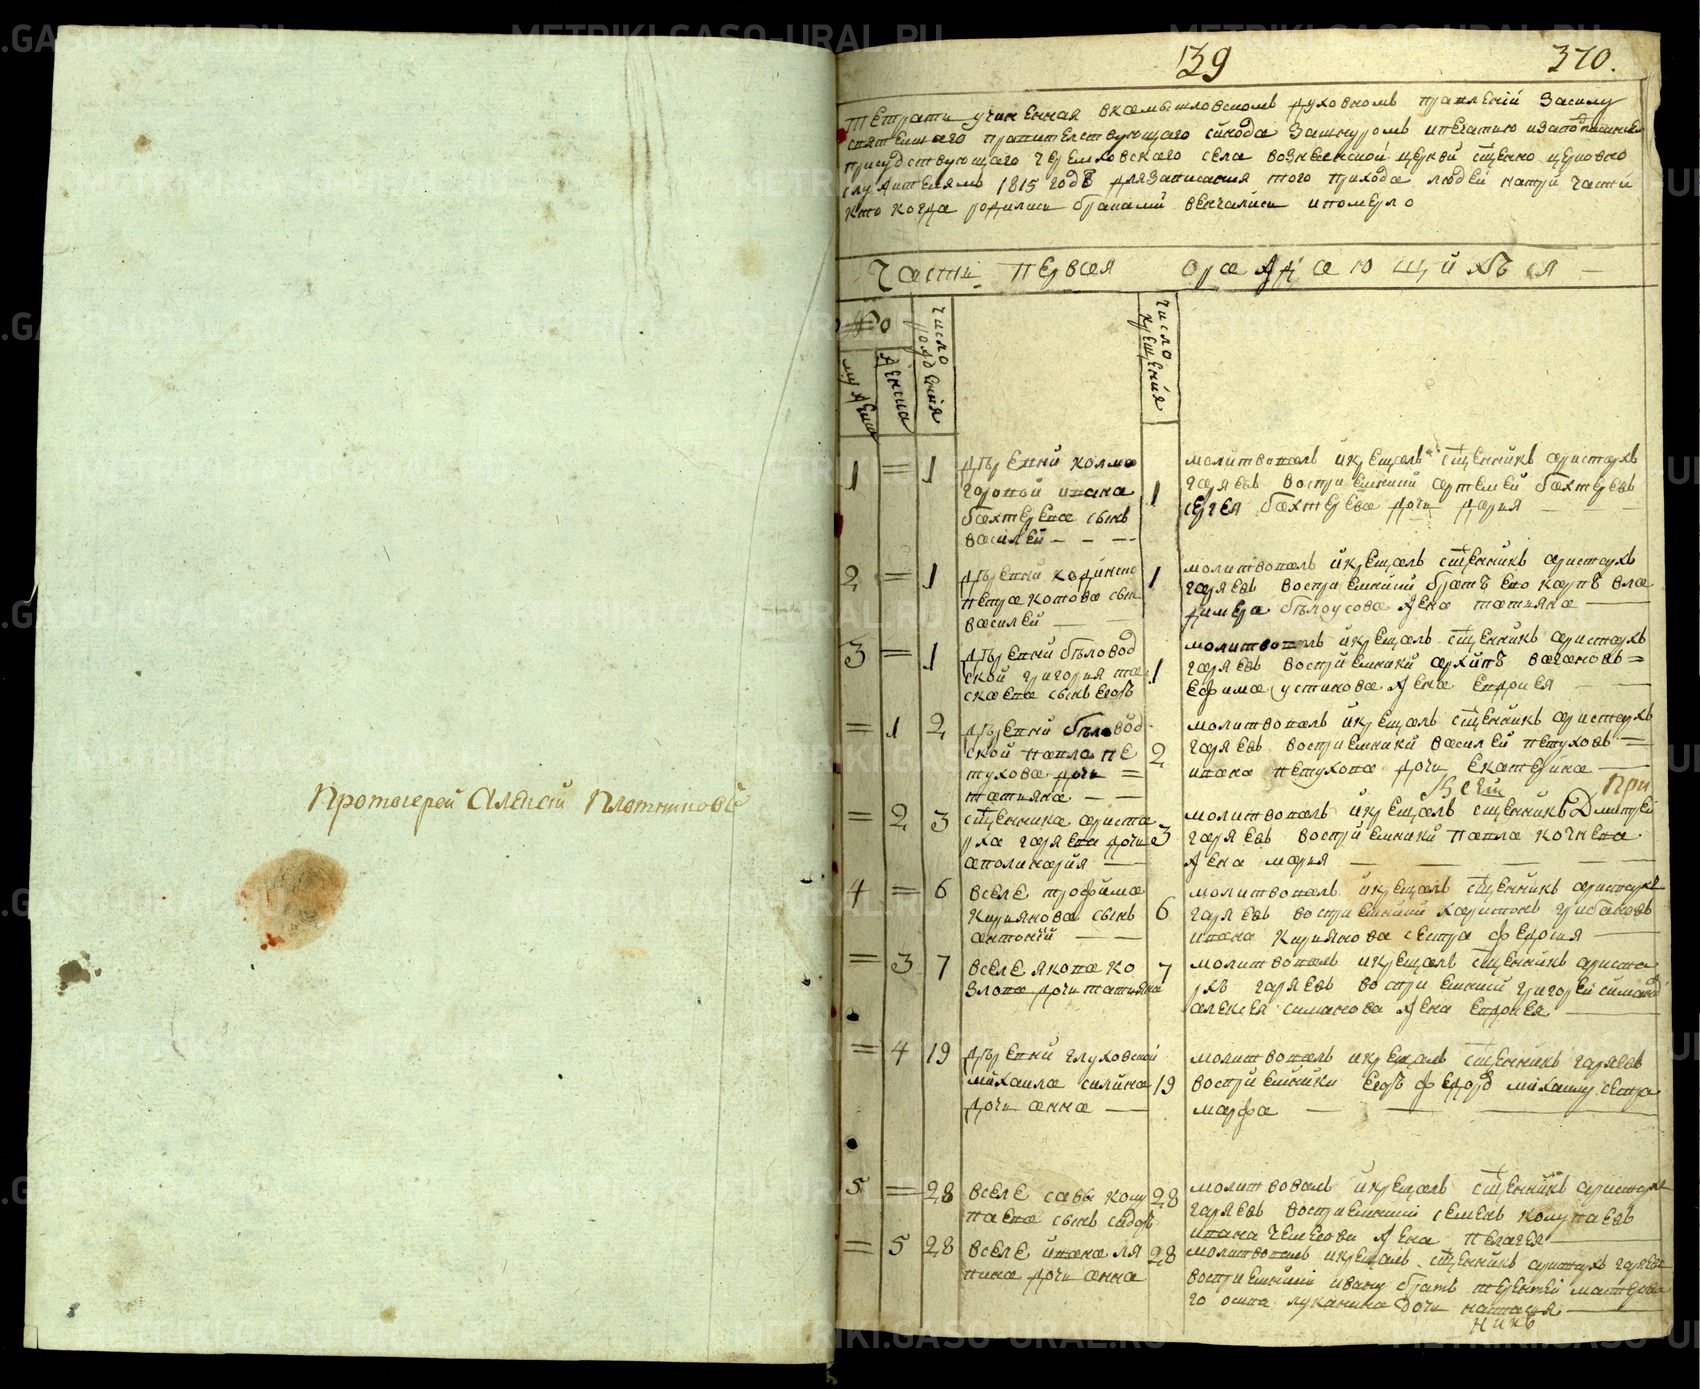 Протоиерей Алексий Плотниковъ
139
370.
Тетрать учиненная вкамышловскомъ духовномъ правленіи засилу
святейшаго правителствующаго сінода зашнуромъ ипечатию
присудствующаго черемховского села вознесенской церкви сщенно церковно
служителямъ 1815 году длязаписания того прихода людей натри части
кто когда родились браками венчались ипомерло
Часть первая ораждающихъся
No
мужеска
женска
число рождения
число крещения
1 = 1
деревни колмо
горовой ивана
бахтерева сынъ
василей
1
молитвовалъ икрещалъ сщенникъ аристархъ
гаряевъ восприемники артемей бахтеревъ
сергея бахтерева дочь дария
2 = 1
петра котова сынъ
василей
1
молитвовалъ икрещалъ сщенникъ аристархъ
гаряевъ восприемники братъ ево карпъ вла
димера белоусова жена татияна
3 = 1
деревни беловод
ской григория
сынъ егоръ
1
молитвовалъ икрещалъ сщенникъ аристархъ
гаряевъ восприемники архипъ вагановъ
ефима устинова жена евдокея
= 1 2
деревни беловод
ской павла пе
тухова дочь
татияна
2
молитвовалъ икрещалъ сщенникъ аристархъ
гаряевъ восприемники василей петуховъ
ивана петухова дочь екатерина
Всей
При
= 2 3
сщенника ариста
рха гаряева дочь
аполинария
3
молитвовалъ икрещалъ сщенникъ Димитрей
гаряевъ восприемники павла кочнева
жена мария
4 = 6
вселе трофима
кирянова сынъ
антоній
6
молитвовалъ икрещалъ сщенникъ аристархъ
гаряевъ восприемники харитонъ грибановъ
ивана кирянова сестра федосия
= 3 7
вселе якова ко
злова дочь татияна
7
молитвовалъ икрещалъ сщенникъ ариста
рхъ гаряевъ восприемники григорей симановъ
алексея симанова жена евдокея
= 4 19
деревни глуховской
михаила силина
дочь анна
19
молитвовалъ икрещалъ сщенникъ гаряевъ
восприемники егоръ федоровъ михаилу сестра
марфа
5 = 28
вселе савы колу
паева сынъ сидоръ
28
молитвовалъ икрещалъ сщенникъ аристархъ
гаряевъ восприемники семенъ колупаевъ
ивана жена пелагея
= 5 28
вселе ивана ля
пина дочь анна
28
молитвовалъ икрещалъ сщенникъ аристархъ гаряевъ
восприемники ивану братъ терентей
осипа луканина дочь наталия
никъ